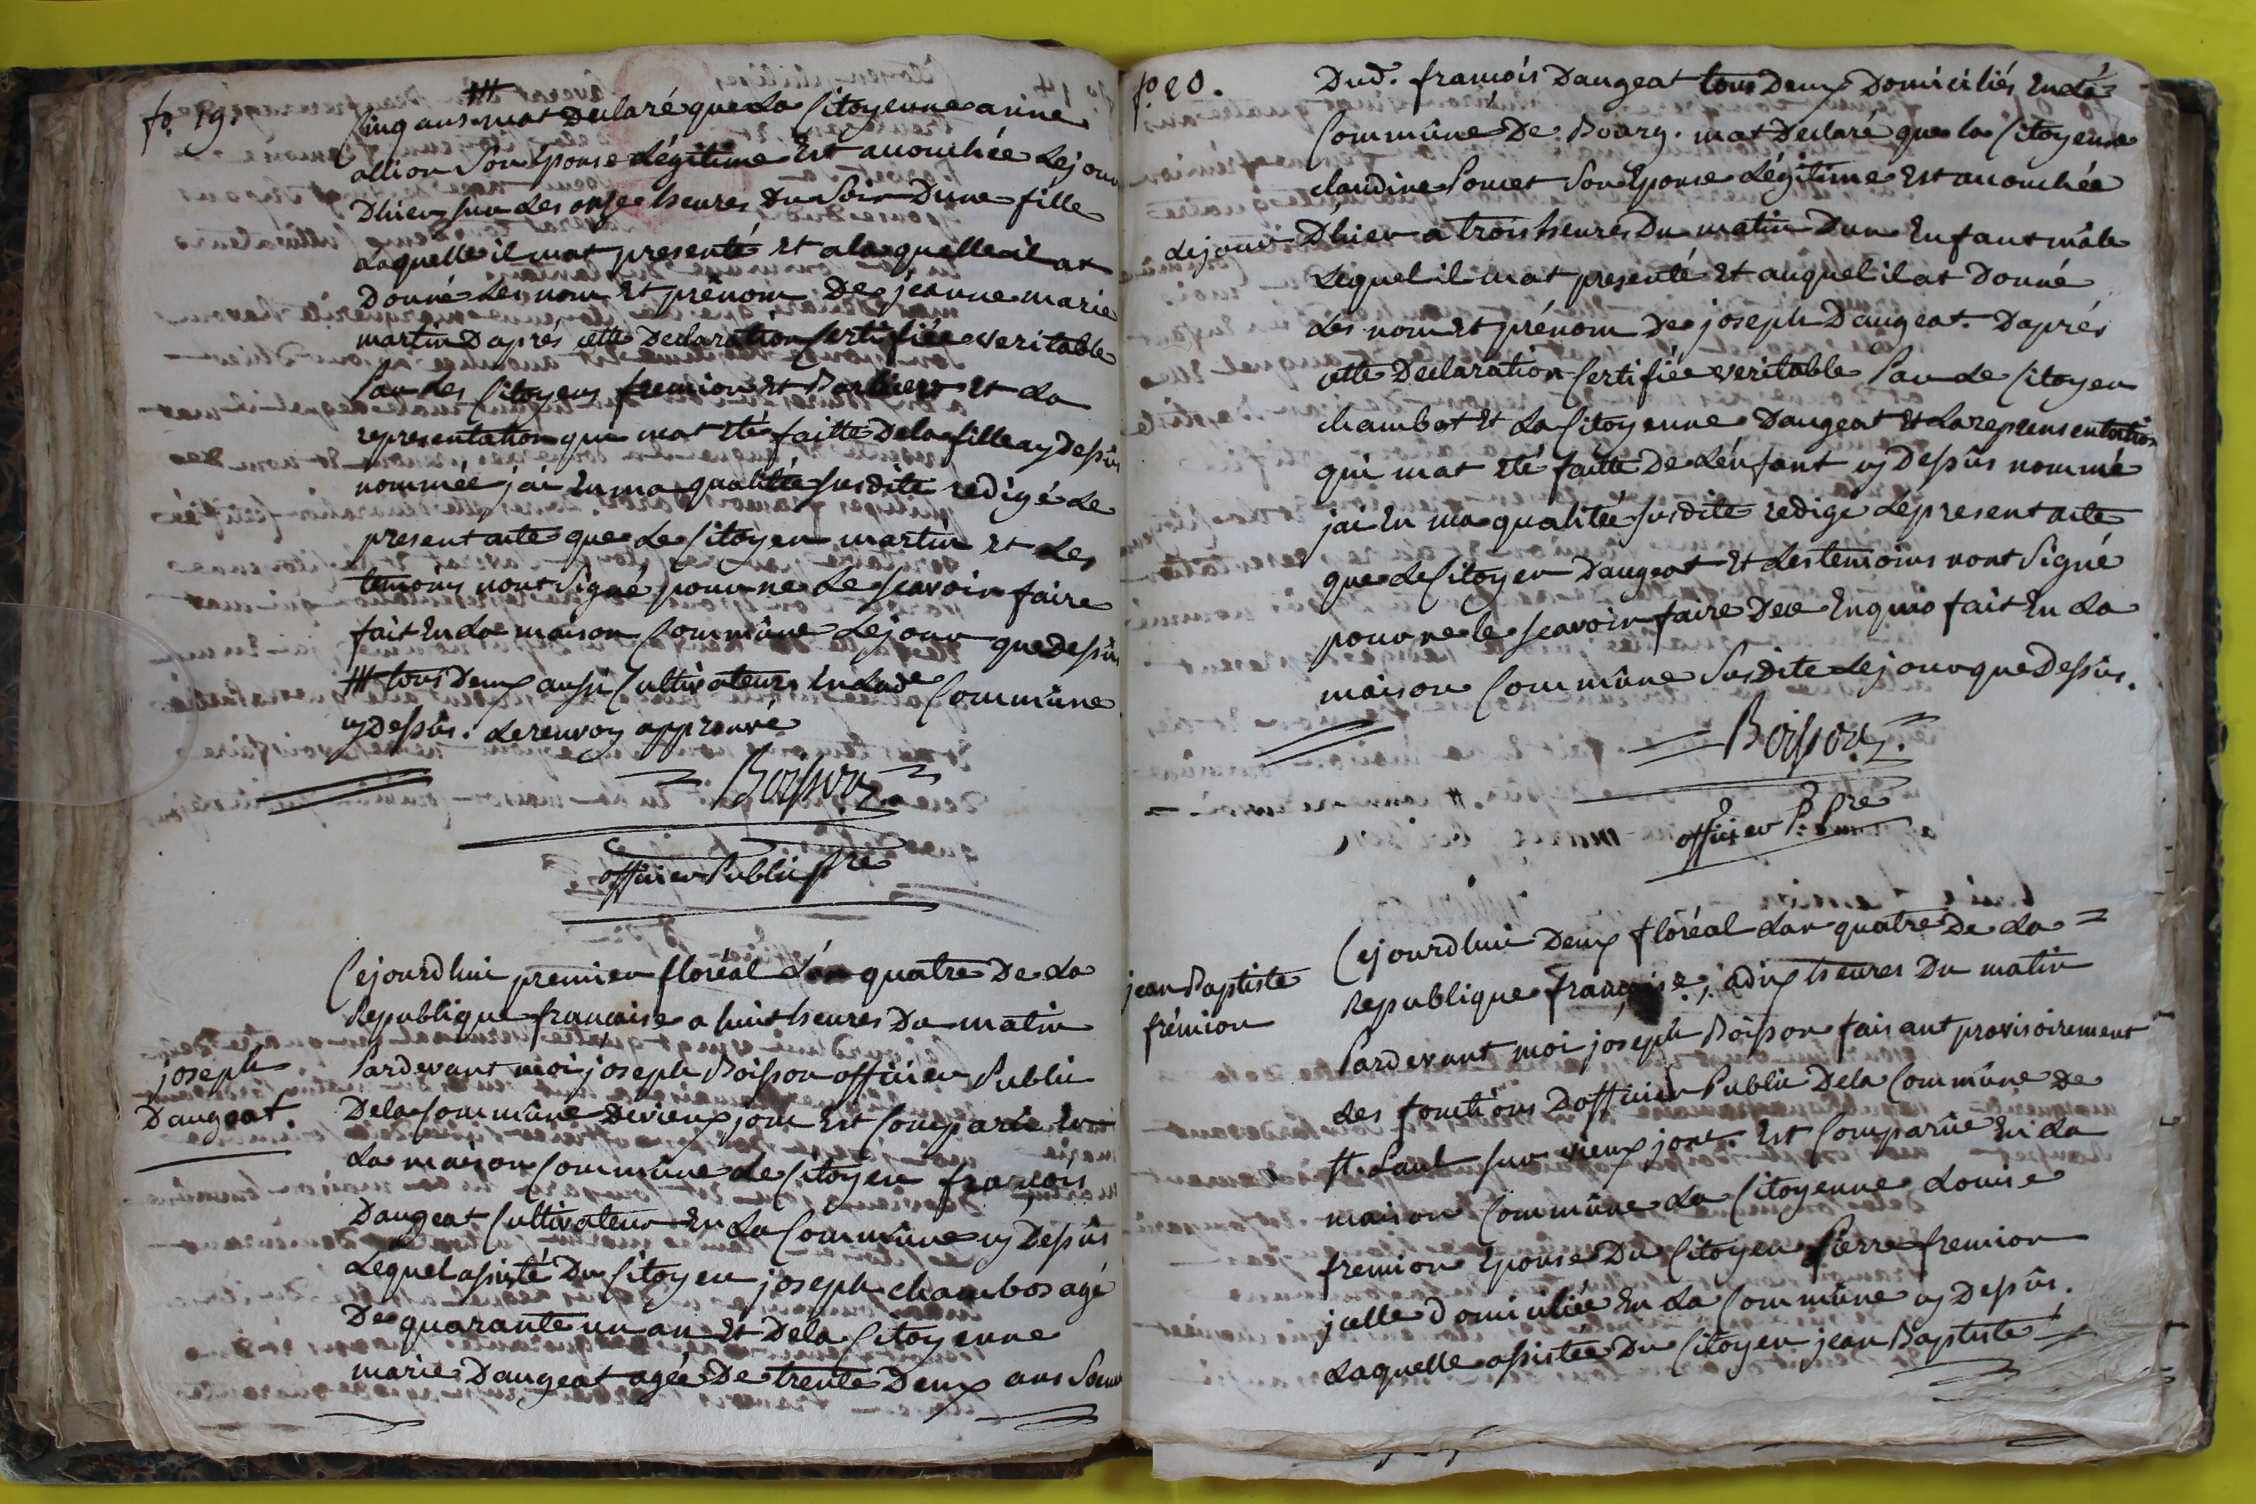 fo. 19.
cinq ans # mat declaré que la Citoyenne anne
allion Son épouse Légitime Est accouchée Le jour
D'hier sur Les onze heures Du Soir Dune fille
Laquelle il mat presenté Et a laquelle il at
Donné Les nom Et prénom De jeanne marie
martin Daprés cette Declaration Certifiée veritable
Par Les Citoyens fremion Et Et La
representation qui mat Eté faitte De la fille cy Dessûs
nommée j'ai En ma qualitée Susdite redigé Le
present acte que Le Citoyen martin Et Les
temoins nont Signé pour ne Le Scavoir faire
fait En La maison Commûne Le jour que Dessûs
# tous Deux aussi Cultivateurs En Lade Commûne
cy Dessûs. Le renvoy approuvé
Boisson
officier Public pre
Joseph
Daugeat.
Cejourdhui premier floréal L'an quatre De La
Republique francaise a huit heures Du matin
Pardevant moi joseph Boisson officier Public
De la Commûne De vieux jon Est Comparû En
La maison Commûne Le Citoyen francois
Daugeat Cultivateur En La Commûne cy Dessûs
Lequel assisté Du Citoyen joseph chambos agé
De quarante un an Et De la Citoyenne
marie Daugeat agée De trente Deux ans Soeur
fo. 20.
Dud. francois Daugeat tous Deux Domiciliés En la
Commûne De Bourg. mat Declaré que la Citoyenne
claudine Poncet Son Eponse Légitime Est accouchée
Le jour D'hier a trois heures Du matin Dun Enfant mâle
Lequel il mat presenté Et auquel il at Donné
Les nom Et prénom De joseph Daugeat. Daprés
cette Declaration Certifiée veritable Par Le Citoyen
chambost Et La Citoyenne Daugeat Et La representation
qui mat Eté faitte De Lénfant cy Dessûs nommé
jai En ma qualitée Susdite redigé Le present acte
que Le Citoyen Daugeat Et Les temoins nont Signé
pour ne le scavoir faire De ce Enquis fait En La
maison Commûne Susdite Le jour que Dessûs.
Boisson
officier P. pre
jean Baptiste
frémion
Cejourdhui Deux floréal Lan quatre De La =
Republique française, a dix heures Du matin
Pardevant moi joseph Boisson faisant provisoirement
Les fonctions Dofficier Public De la Commûne De
st. Paul sur vieux jonc. Est Comparûe En La
maison Commûne La Citoyenne Louise
fremion Eponse Du Citoyen Pierre fremion
jcelle Domiciliée En La Commûne cy Dessûs.
Laquelle assistée Du Citoyen jean Baptiste